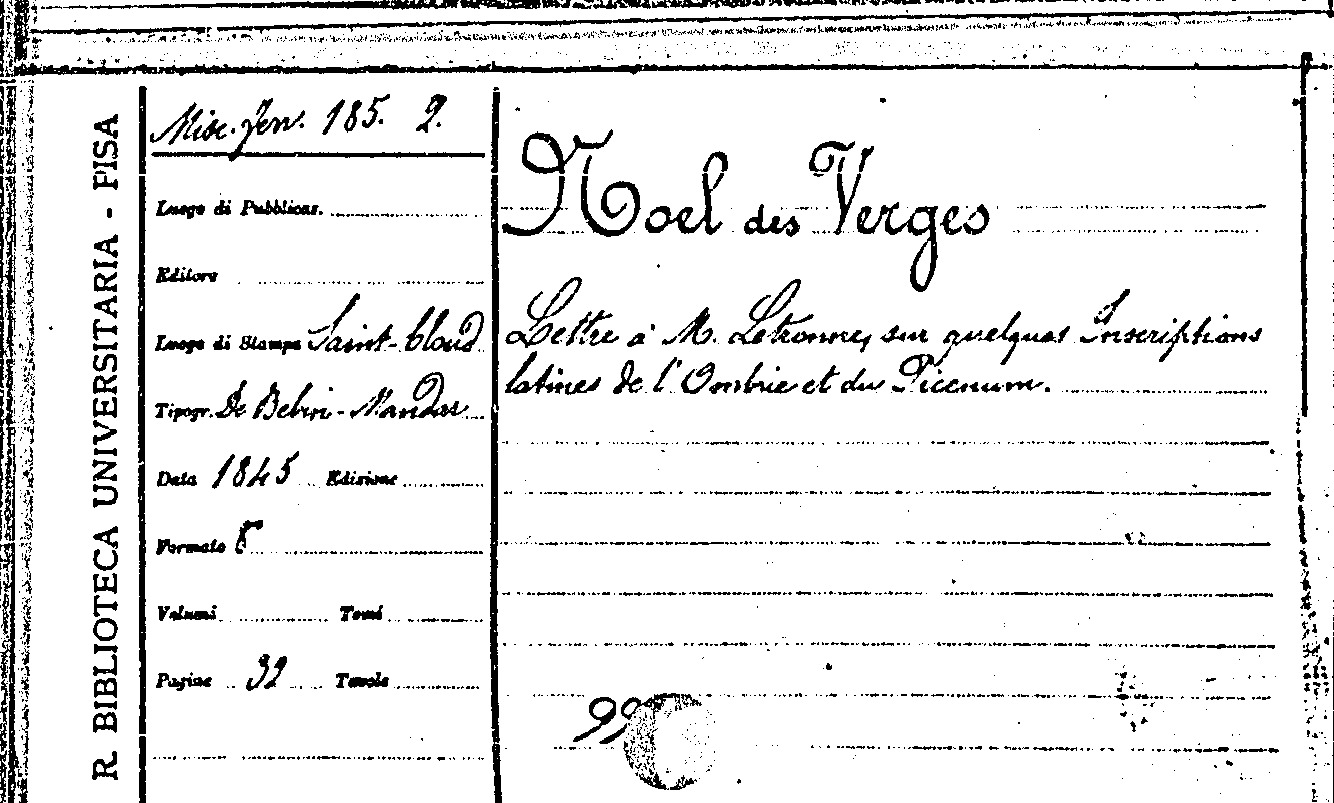 R. BIBLIOTECA UNIVERSITARIA - PISA
Misc. Fen. 185. 2.
Luogo di Pubblicaz.
Editore
Luogo di Stampa Saint-Cloud
Tipogr. De Belin-Mandar
Data 1845 Edizione
Formato 8°
Volumi Tomi
Pagine 32 Tavole
Noel des Verges
Lettre à M. Letronne, sur quelques Inscriptions
latines de l'Ombrie et du Picenum.